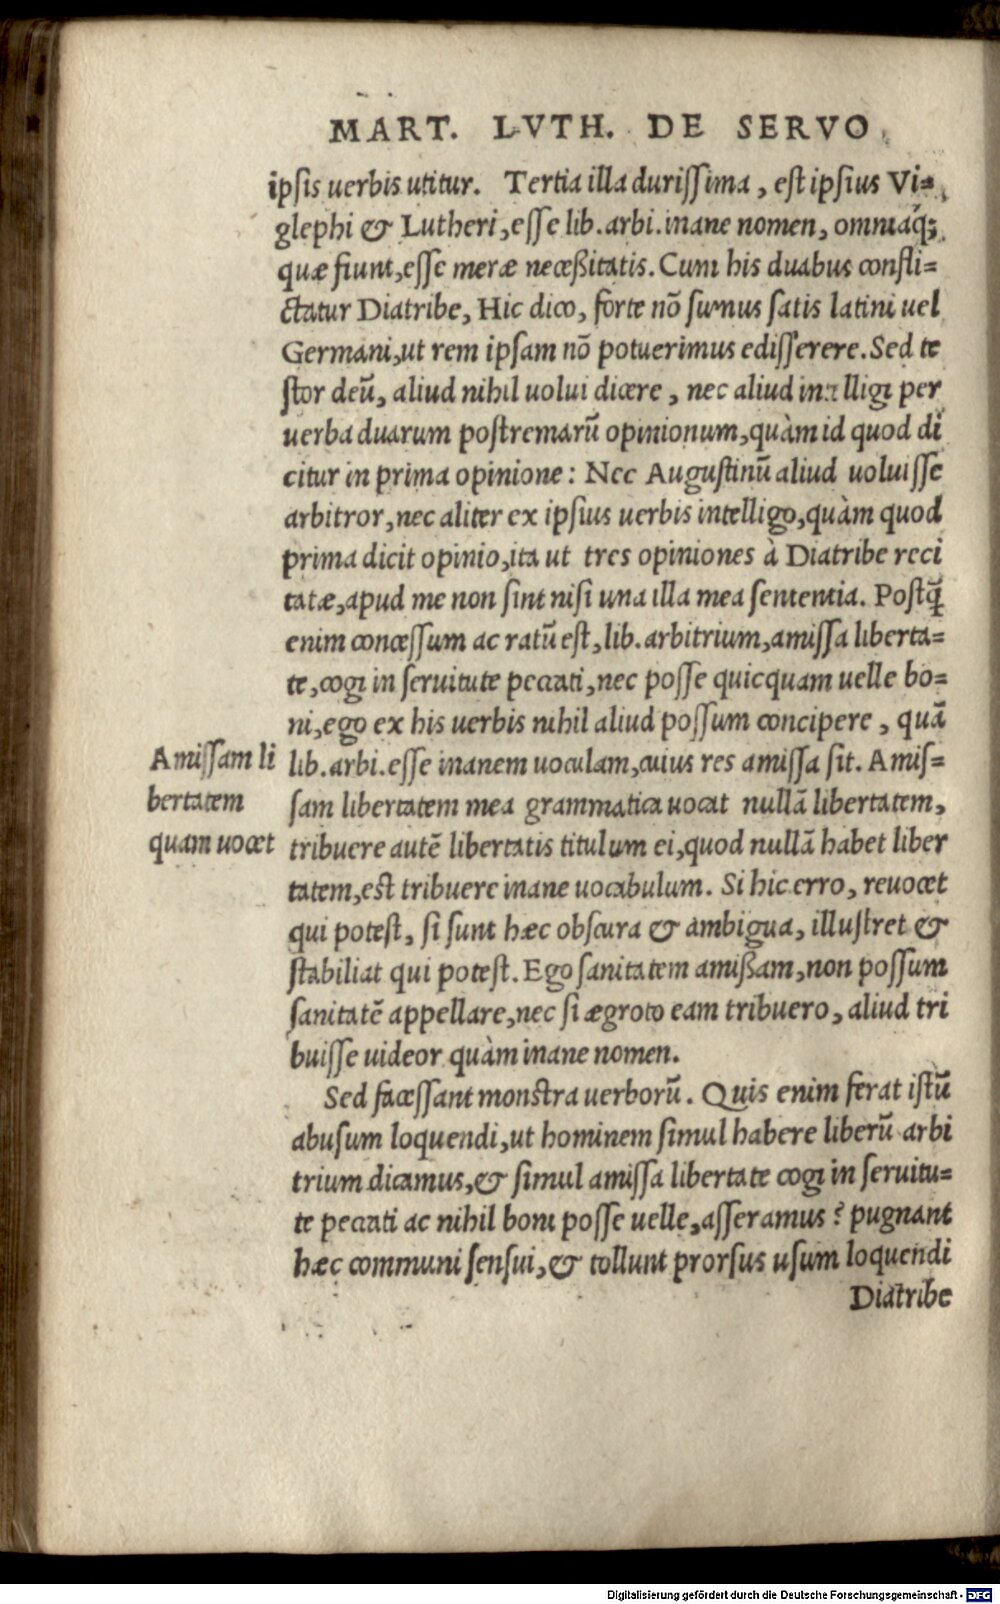 MART. LVTH. DE SERVO
ipsis uerbis utitur. Tertia illa durissima, est ipsius Vi=
glephi & Lutheri, esse lib. arbi. inane nomen, omniaq́;
quæ fiunt, esse meræ neceßitatis. Cum his duabus confli=
ctatur Diatribe, Hic dico, forte nō sumus satis latini uel
Germani, ut rem ipsam nō potuerimus edisserere. Sed te
stor deū, aliud nihil uolui dicere, nec aliud intelligi per
uerba duarum postremarū opinionum, quàm id quod di
citur in prima opinione: Nec Augustinū aliud uoluisse
arbitror, nec aliter ex ipsius uerbis intelligo, quàm quod
prima dicit opinio, ita ut tres opiniones à Diatribe reci
tatæ, apud me non sint nisi una illa mea sententia. Postq̃
enim concessum ac ratū est, lib. arbitrium, amissa liberta=
te, cogi in seruitute peccati, nec posse quicquam uelle bo=
ni, ego ex his uerbis nihil aliud possum concipere, quā
Amissam li
bertatem
quam uocet
lib. arbi. esse inanem uoculam, cuius res amissa sit. Amis=
sam libertatem mea grammatica uocat nullā libertatem,
tribuere autē libertatis titulum ei, quod nullā habet liber
tatem, est tribuere inane uocabulum. Si hic erro, reuocet
qui potest, si sunt hæc obscura & ambigua, illustret &
stabiliat qui potest. Ego sanitatem amißam, non possum
sanitatē appellare, nec si ægroto eam tribuero, aliud tri
buisse uideor quàm inane nomen.
Sed facessant monstra uerborū. Quis enim ferat istū
abusum loquendi, ut hominem simul habere liberū arbi
trium dicamus, & simul amissa libertate cogi in seruitu=
te peccati ac nihil boni posse uelle, asseramus? pugnant
hæc communi sensui, & tollunt prorsus usum loquendi
Diatribe
Digitalisierung gefördert durch die Deutsche Forschungsgemeinschaft - DFG